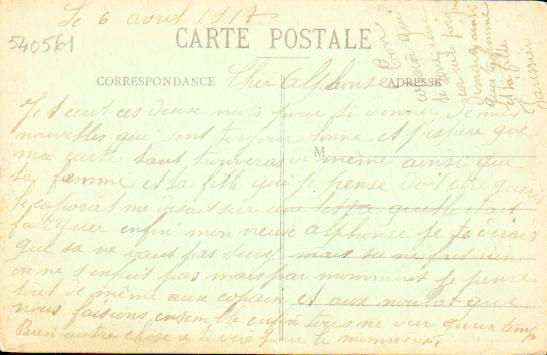 Le 6 avril 1917
540561
CARTE POSTALE
CORRESPONDANCE
ADRESSE
Cher alphonse
Je t'ecrit ces deux mots pour te donner de mes
nouvelles qui sont toujour bonne et j'espère que
ma carte tant trouveras de même ainsi que
M
ta femme et ta fille qui je pense doit etre gueris
le caporal me disait sur une lettre quelle etait
fatiguer enfin mon vieux alphonse je te dirais
que sa ne vaut pas mais su ne fais rien
on ne s'enfuit pas mais par momment je pense
tout de même aux copain et aux que
nous faisions ensemble enfin tous ne dur qu'un temps
Rien autre chose a te dire pour te momment
Bon
que ta femme
et ta fille